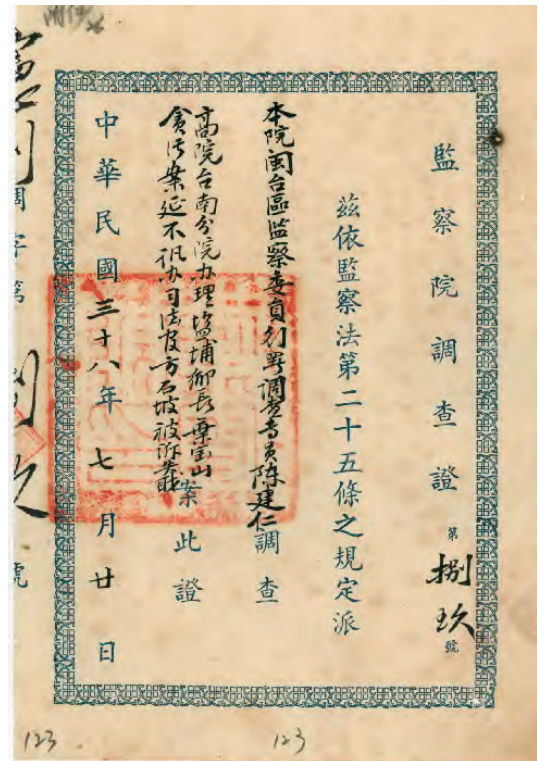 監察院調查證 第捌玖號
茲依監察法第二十五條之規定派
本院闽台區監察委員行署調查專員陈建仁調查
高院台南分院办理塩埔鄉長葉宝山
貪污案延不讯办司法官方石坡被诉案此證
中華民國三十八年七月廿日
調字第 號
123
123